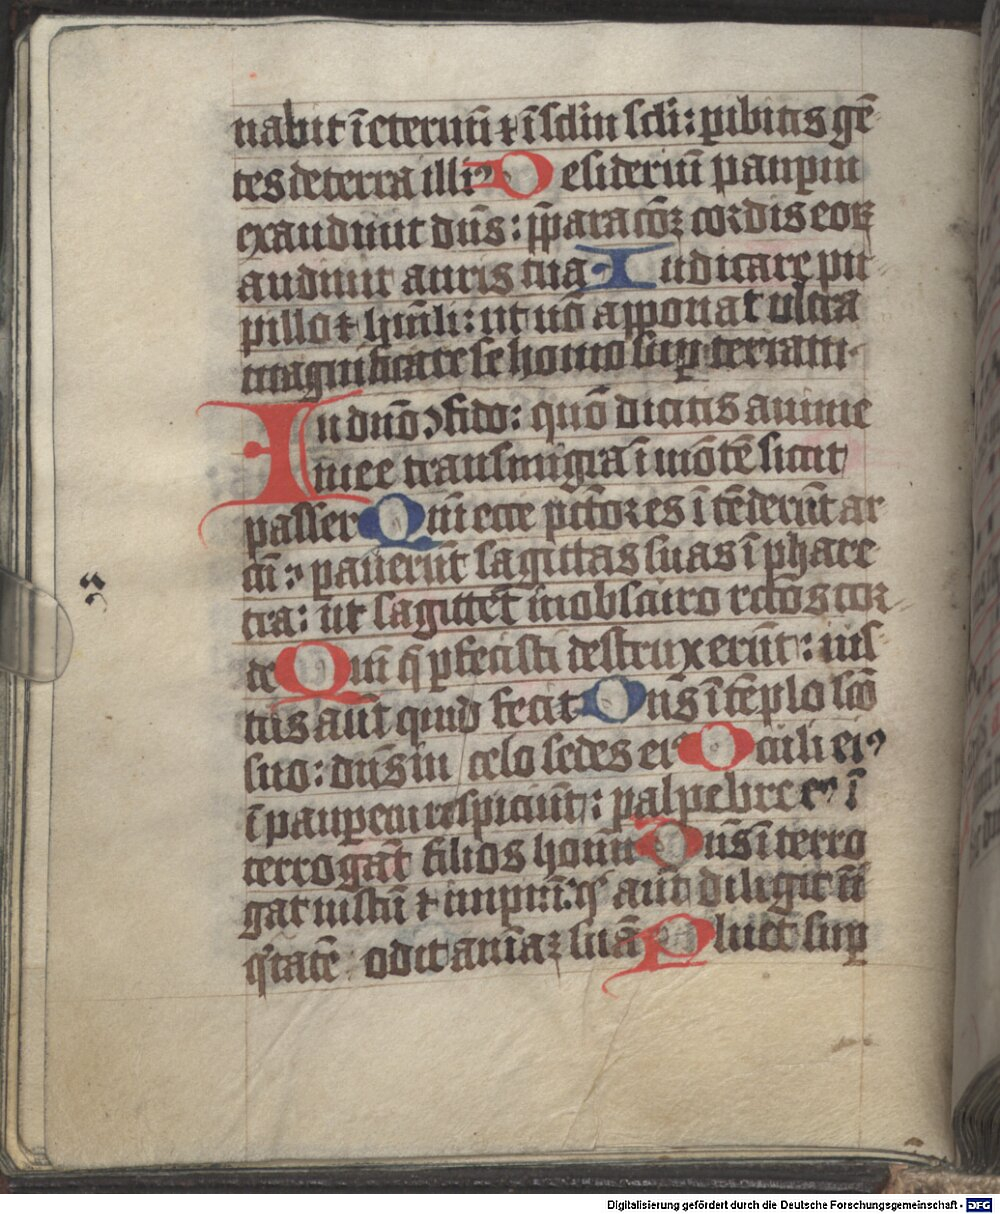 nabit ī eternū ⁊ ī sclm̄ scli: ꝑibitis gē-
tes de terra illiꝰ Desideriū pauꝑum
exaudiuit dn̄s: p̄paracōꝫ cordis eoꝝ
audiuit auris tua Iudicare pu-
pillo ⁊ hūili: ut nō apponat ultra
magnificare se homo suꝑ terram.
In dn̄o ꝯfido: quō dicitis anime
mee transmigra ī mōtē sicut
passer Qm̄ ecce pctōres ītēderūt ar
cū: pauerūt sagittas suas ī phare
tra: ut sagittēt in obscuro rectōs cor-
de Qm̄ q̄ ꝑfecisti destruxerūt: ius
tus aut̄ quid fecit Dn̄s ī tēplo scō
suo: dn̄s in celo sedes eiꝰ Oculi eiꝰ
ī pauꝑem respiciūt: palpebre eꝰ ī
terrogāt filios homīu Dn̄s īterro
gat iustū ⁊ impiū: qͥ aut̄ diligit īi
qͥtatē odit aīaꝫ suā Pluet suꝑ
Digitalisierung gefördert durch die Deutsche Forschungsgemeinschaft - DFG